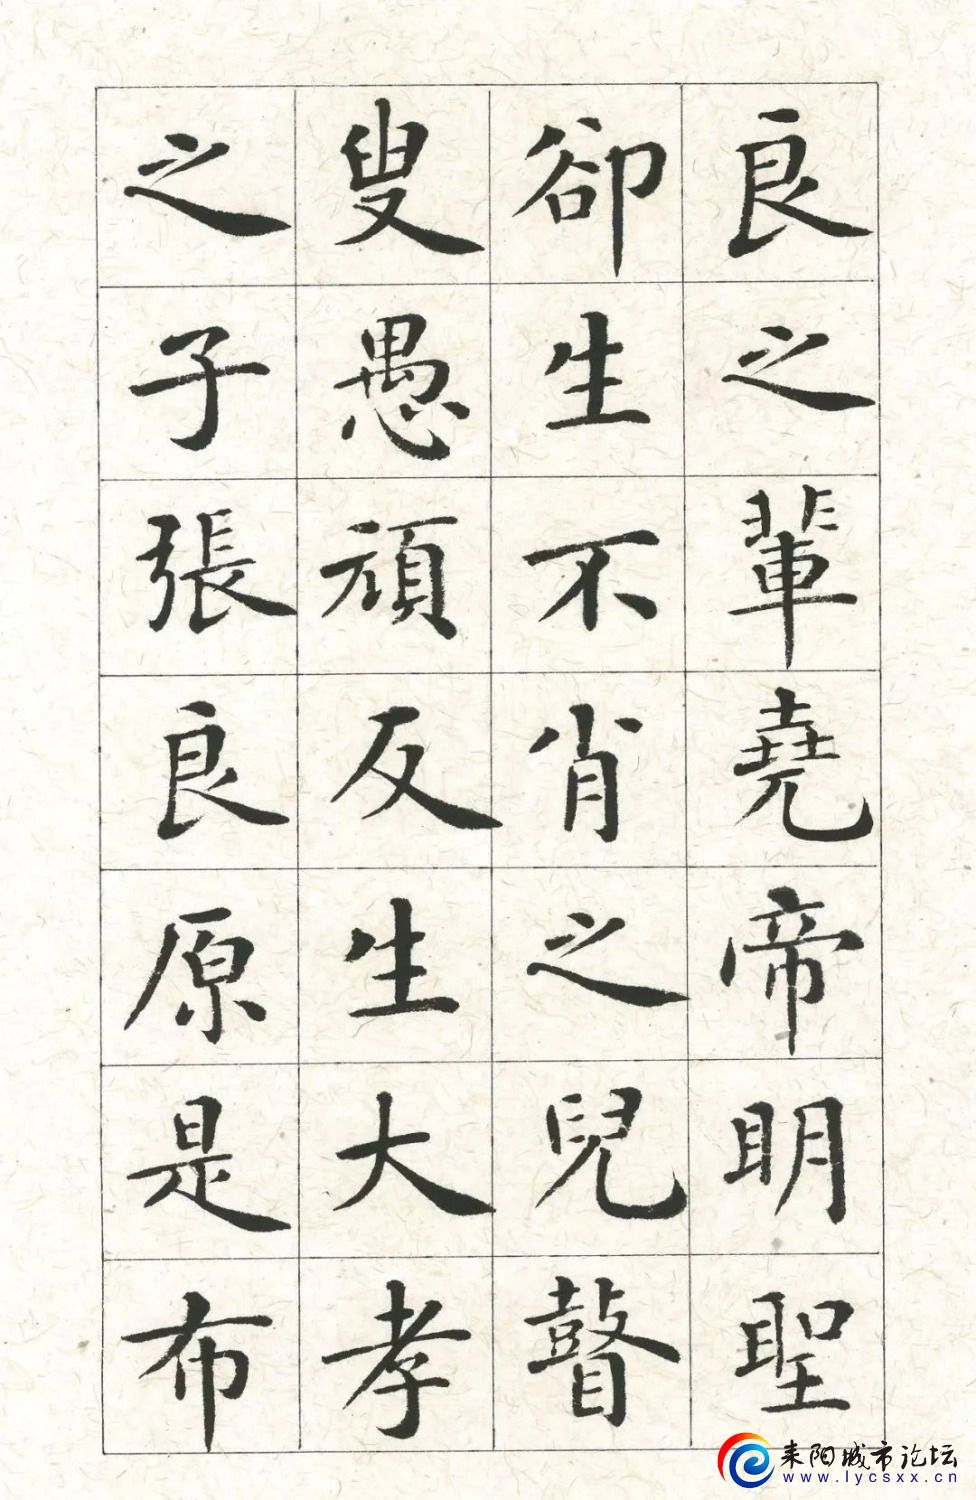 良之輩堯帝明聖
卻生不肖之兒瞽
叟愚頑反生大孝
之子張良原是布
耒阳城市论坛
www.lycsxx.cn